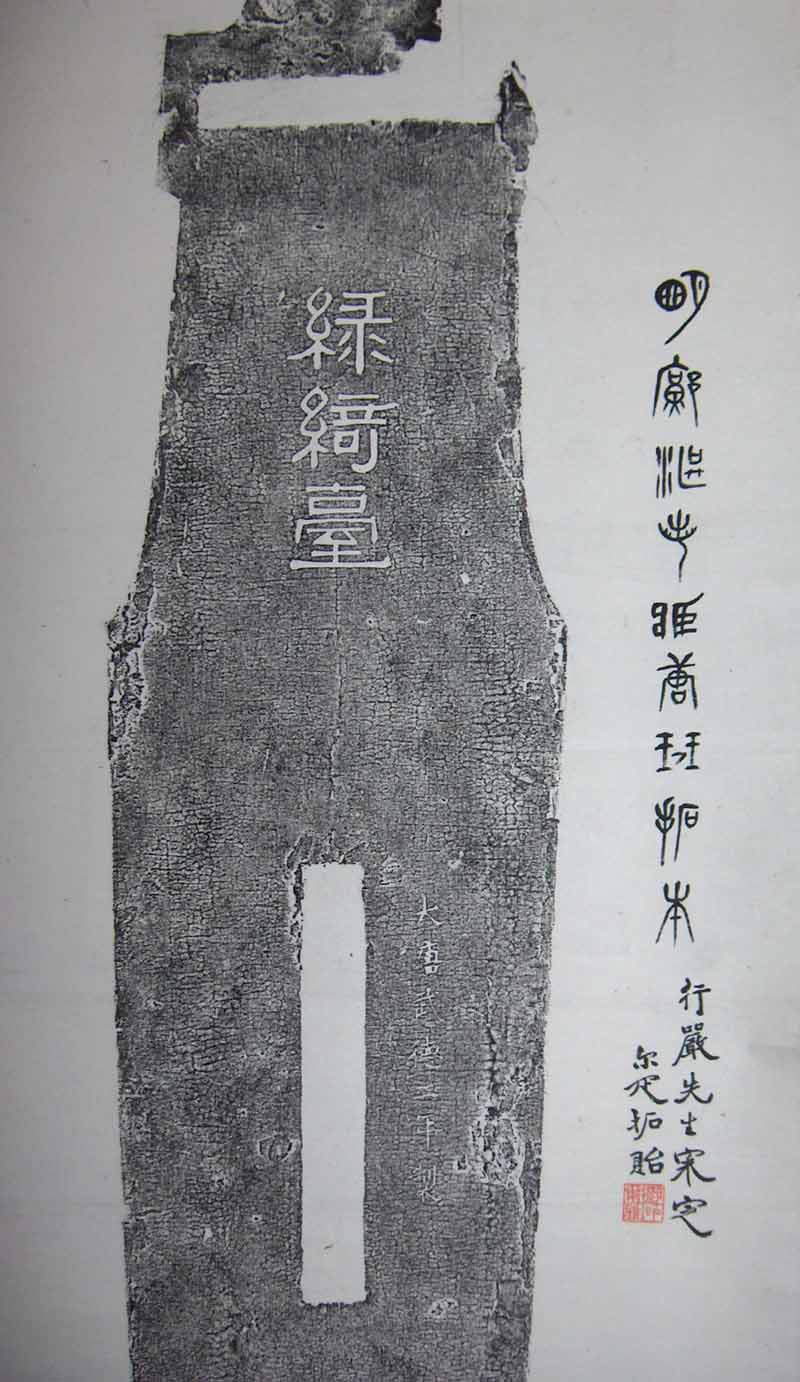 明鄺湛若臧唐琴拓本
行嚴先生宷定
尔疋拓貽
綠綺臺
大唐武德年製